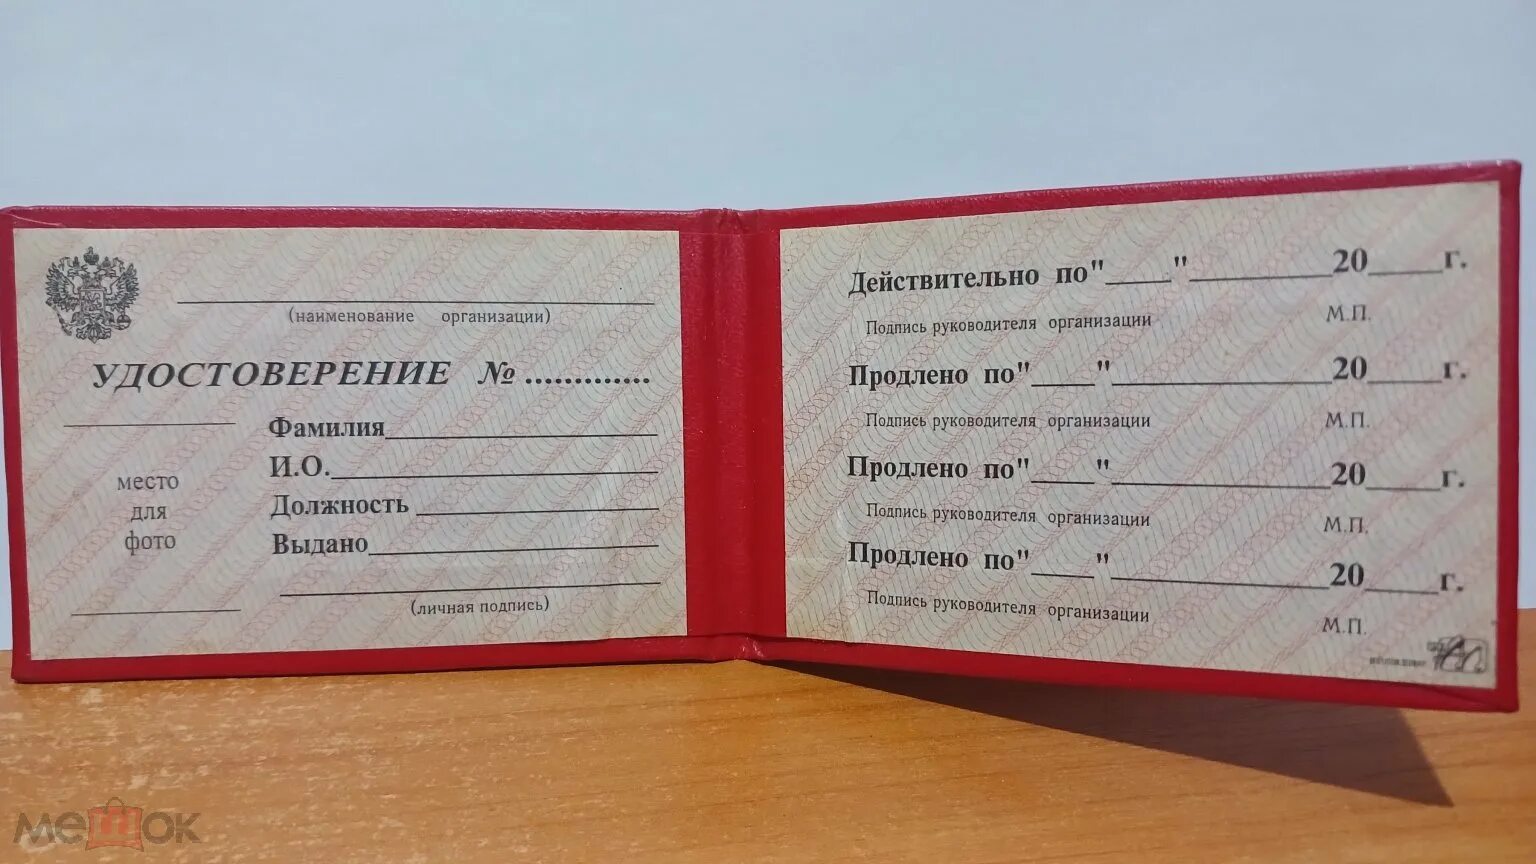 (наименование организации)
УДОСТОВЕРЕНИЕ № .............
Фамилия
И.О.
Должность
Выдано
(личная подпись)
место
для
фото
Действительно по"____"__________20____г.
Подпись руководителя организации М.П.
Продлено по"____"__________20____г.
Подпись руководителя организации М.П.
Продлено по"____"__________20____г.
Подпись руководителя организации М.П.
Продлено по"____"__________20____г.
Подпись руководителя организации М.П.
мешок